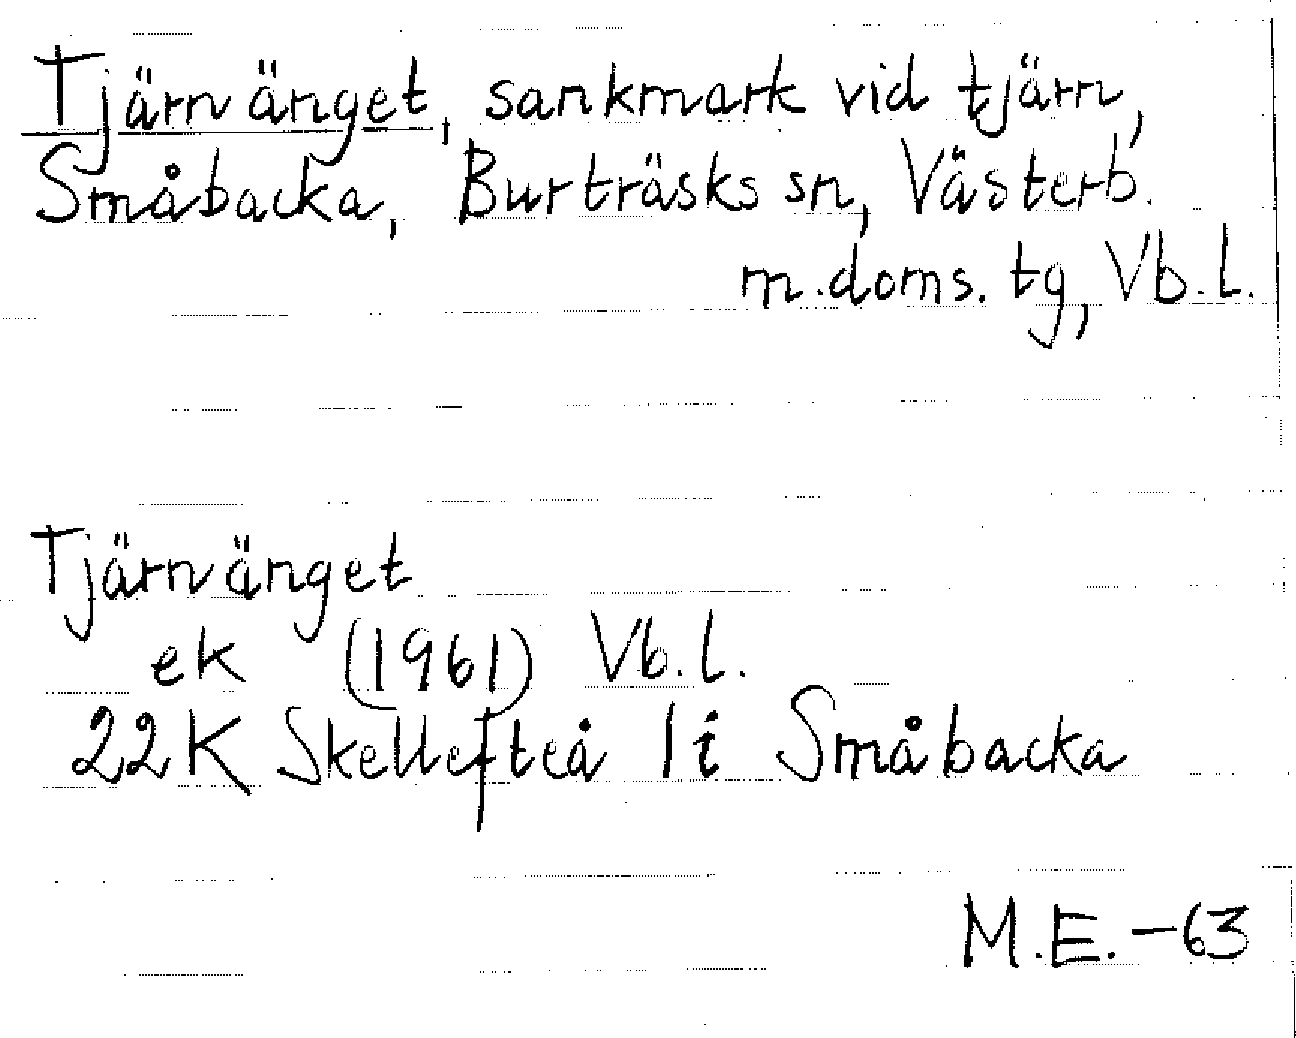 Tjärnvänget, sankmark vid tjärn,
Småbacka, Burträsks sn, Västerb.
m. doms. tg, Vb. l.
Tjärnvänget
ek (1961) Vb. l.
22K Skellefteå 1 i Småbacka
M.E. -63